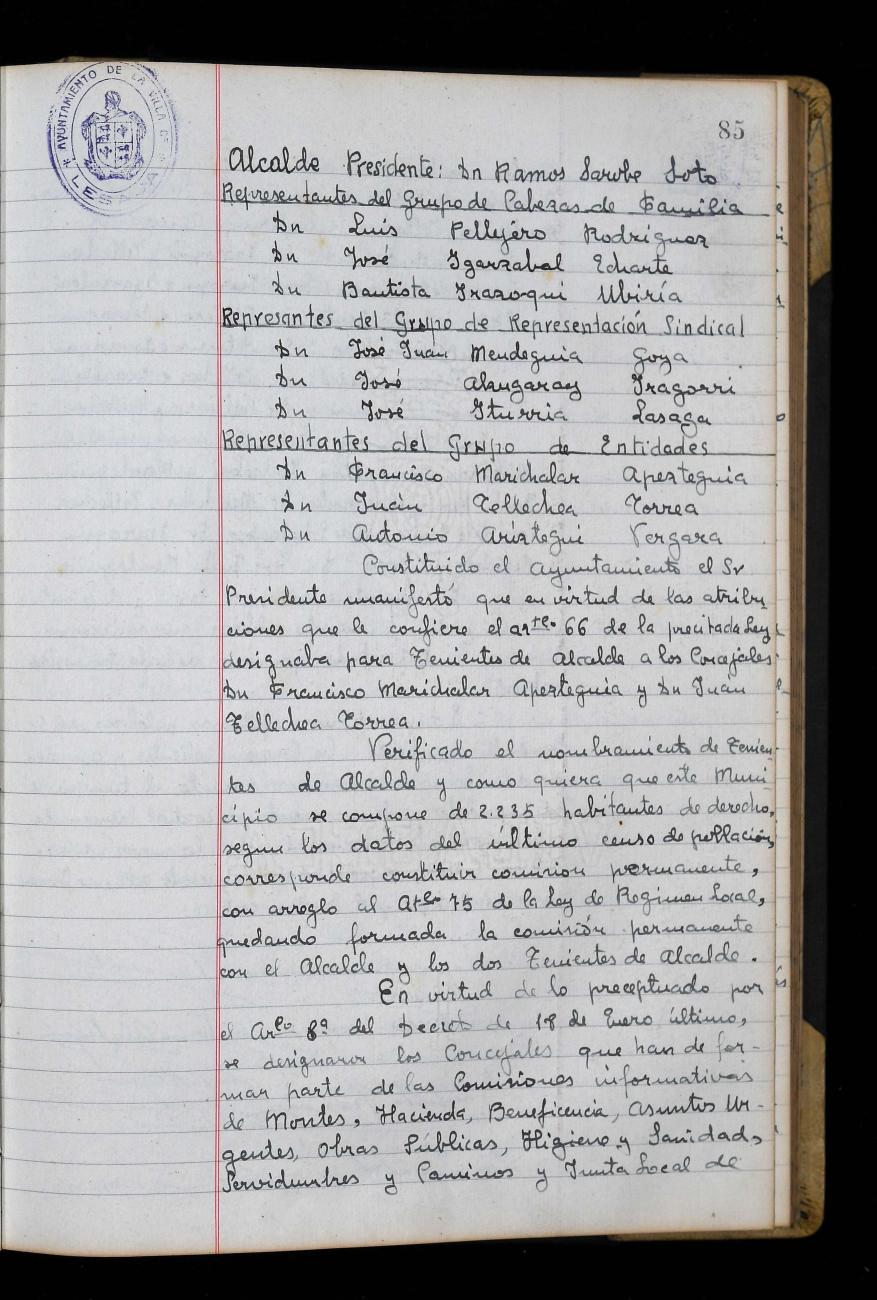 AYUNTAMIENTO DE LA VILLA DE
LESACA
85
Alcalde Presidente: Dn Ramos Sarobe Soto
Representantes del Grupo de Cabezas de Familia
Dn Luis Pellejero Rodriguez
Dn José Ygarzabal Echarte
Dn Bautista Irazoqui Ubiría
Represantes del Grupo de Representación Sindical
Dn José Juan Mendeguia Goya
Dn José Alzugaray Iragorri
Dn José Iturria Lasaga
Representantes del Grupo de Entidades
Dn Francisco Marichalar Apezteguia
Dn Juán Tellechea Torrea
Dn Antonio Ariztegui Vergara
Constituido el Ayuntamiento el Sr
Presidente manifestó que en virtud de las atribu
ciones que le confiere el artlo 66 de la precitada Ley
designaba para Tenientes de Alcalde a los Concejales
Dn Francisco Marichalar Apezteguia y Dn Juán
Tellechea Torrea.
Verificado el nombramiento de Tenien-
tes de Alcalde y como quiera que este Muni-
cipio se compone de 2.235 habitantes de derecho,
segun los datos del último censo de pollación,
corresponde constituir comision permanente,
con arreglo al Artlo 75 de la Ley de Regimen Local,
quedando formada la comisión permanente
con el Alcalde y los dos Tenientes de Alcalde.
En virtud de lo preceptuado por
el Arlo 8º del Decreto de 18 de Enero último,
se designaron los Concejales que han de for-
mar parte de las Comisiones informativas
de Montes, Hacienda, Beneficencia, Asuntos Ur-
gentes, Obras Públicas, Higiene y Sanidad,
Servidumbres y Caminos y Junta Local de